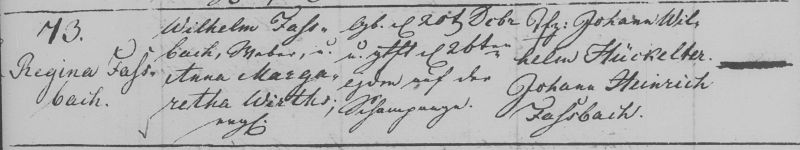 73.
Regina Fass-
bach.
Wilhelm Fass-
bach, Weber, u.
Anna Marga-
retha Wirths,
Geb. d 20t Dcbr
u. gtft d 26ten
ejdm auf der
Schampange.
Pfz: Johann Wil-
helm Hückelber.
Johann Heinrich
Fassbach.